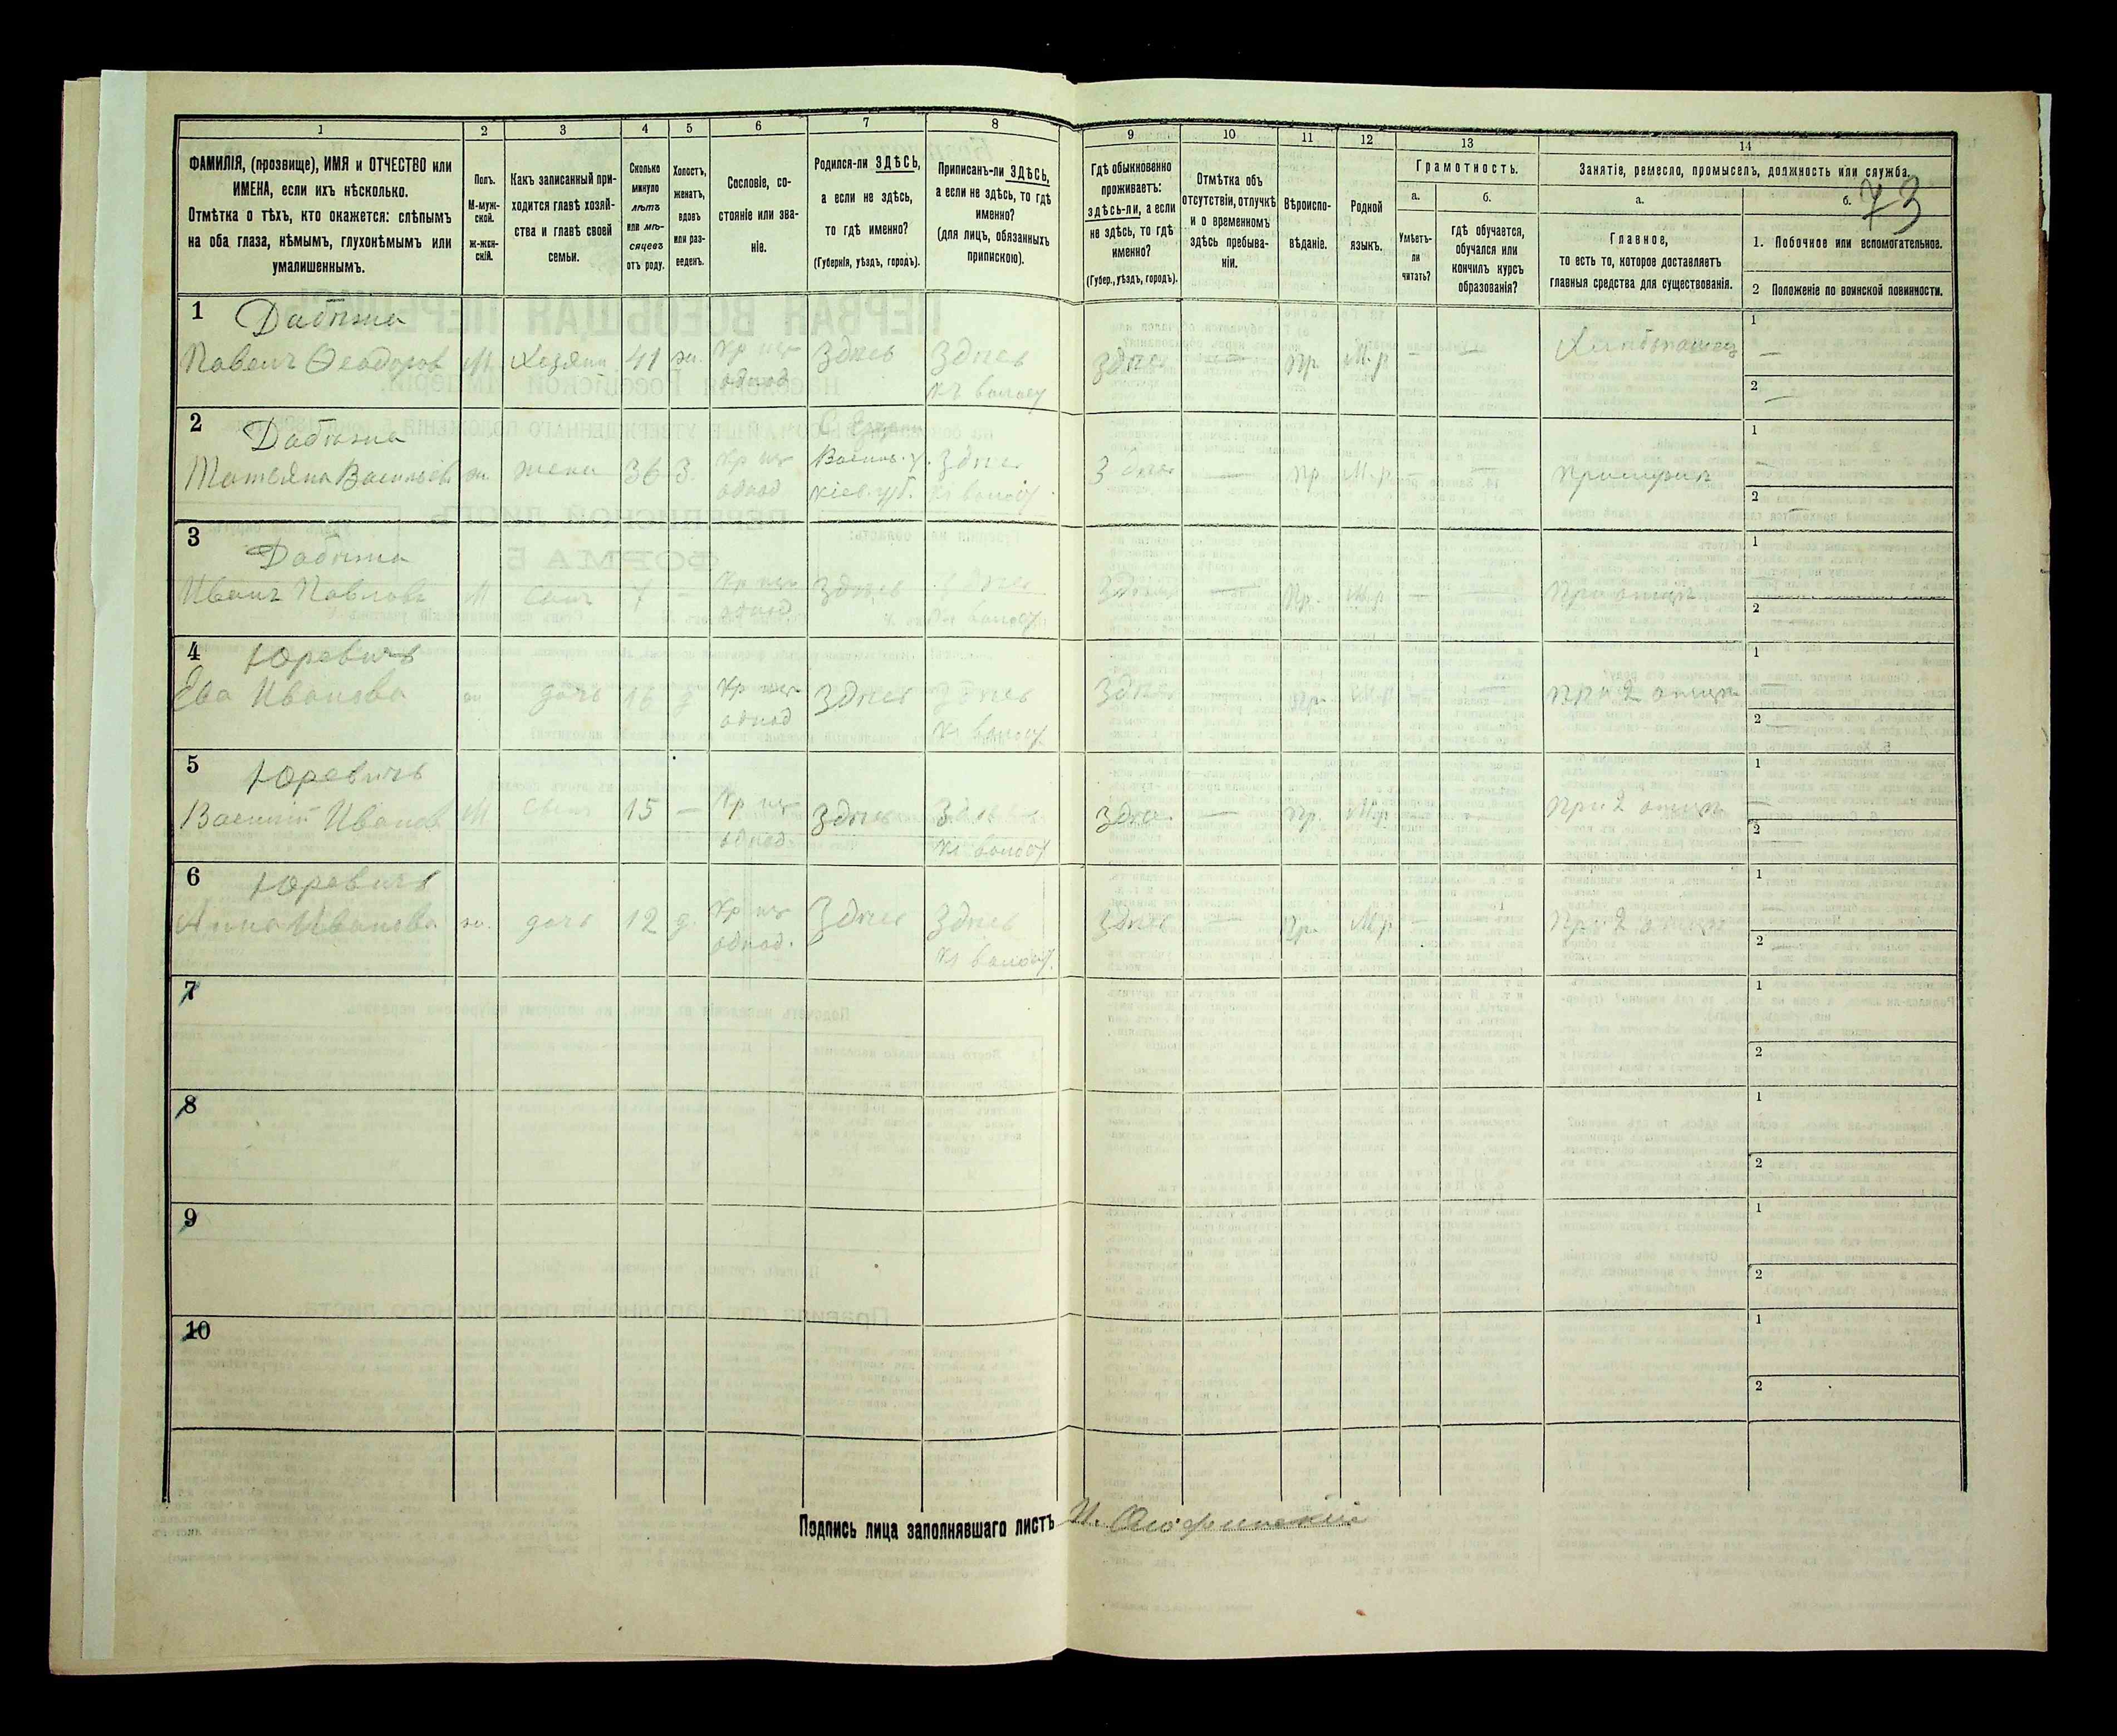 1 2 3 4 5 6 7 8 9 10 11 12 13 14
ФАМИЛІЯ, (прозвище), ИМЯ и ОТЧЕСТВО или
ИМЕНА, если ихъ нѣсколько.
Отмѣтка о тѣхъ, кто окажется: слѣпымъ
на оба глаза, нѣмымъ, глухонѣмымъ или
умалишеннымъ.
Полъ.
М-муж-
ской.
Ж-жен-
скій.
Какъ записанный при-
ходится главѣ хозяй-
ства и главѣ своей
семьи.
Сколько
минуло
лѣтъ
или мѣ-
сяцевъ
отъ роду.
Холостъ,
женатъ,
вдовъ
или раз-
веденъ.
Сословіе, со-
стояніе или зва-
ніе.
Родился-ли ЗДѢСЬ,
а если не здѣсь,
то гдѣ именно?
(Губернія, уѣздъ, городъ).
Приписанъ-ли ЗДѢСЬ,
а если не здѣсь, то гдѣ
именно?
(для лицъ, обязанныхъ
припискою).
Гдѣ обыкновенно
проживаетъ:
здѣсь-ли, а если
не здѣсь, то гдѣ
именно?
(Губер., уѣздъ, городъ).
Отмѣтка объ
отсутствіи, отлучкѣ
и о временномъ
здѣсь пребыва-
ніи.
Вѣроиспо-
вѣданіе.
Родной
языкъ.
Грамотность.
а.
Умѣетъ-
ли
читать?
б.
гдѣ обучается,
обучался или
кончилъ курсъ
образованія?
Занятіе, ремесло, промыселъ, должность или служба.
а.
Главное,
то есть то, которое доставляетъ
главныя средства для существованія.
б. 73
1. Побочное или вспомогательное.
2 Положеніе по воинской повинности.
1 Дабижа
Павелъ Ѳеодоров М Хозяин 41 ж. Здѣсь Здѣсь Здѣсь — Пр. М.р — — Хлѣбопашец 1 —
однод 2 —
2 Дабижа
Татьяна Васильев ж. жена 36 З. Васильк. у. Здѣсь Здѣсь — пр М.р — — 1 —
однод Кіев. губ. 2 —
3 Дабижа
Иванъ Павлов М Сынъ 7 — Здѣсь Здѣсь Здѣсь — Пр. М.р — — При отцѣ 1
однод 2
4 Юревичъ
Ева Иванова ж дочь 16 д Здѣсь Здѣсь Здѣсь Пр. М.р при 2 отцѣ 1 —
однод 2 —
5 Юревичъ
Василій Иванов М Сынъ 15 — Здѣсь Здѣсь Здѣс. — Пр. М.р — при 2 отцѣ 1 —
однод. 2
6 Юревичъ
Анна Иванова ж. дочь 12 д. Здѣсь Здѣсь Здѣсь — Пр. М.р — При 2 отцѣ 1
однод. 2
7 1
2
8 1
2
9 1
2
10 1
2
Подпись лица заполнявшаго листъ